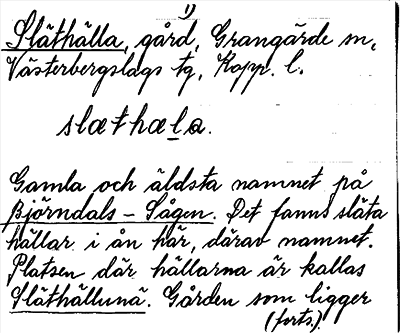 Släthälla, gård, 1) Grangärde sn,
Västerbergslags tg, Kopp. l.
slæthæla.
Gamla och äldsta namnet på
Björndals-Sågen. Det fanns släta
hällar i ån här, därav namnet.
Platsen där hällarna är kallas
Släthällunä. Gården som ligger
(forts.)